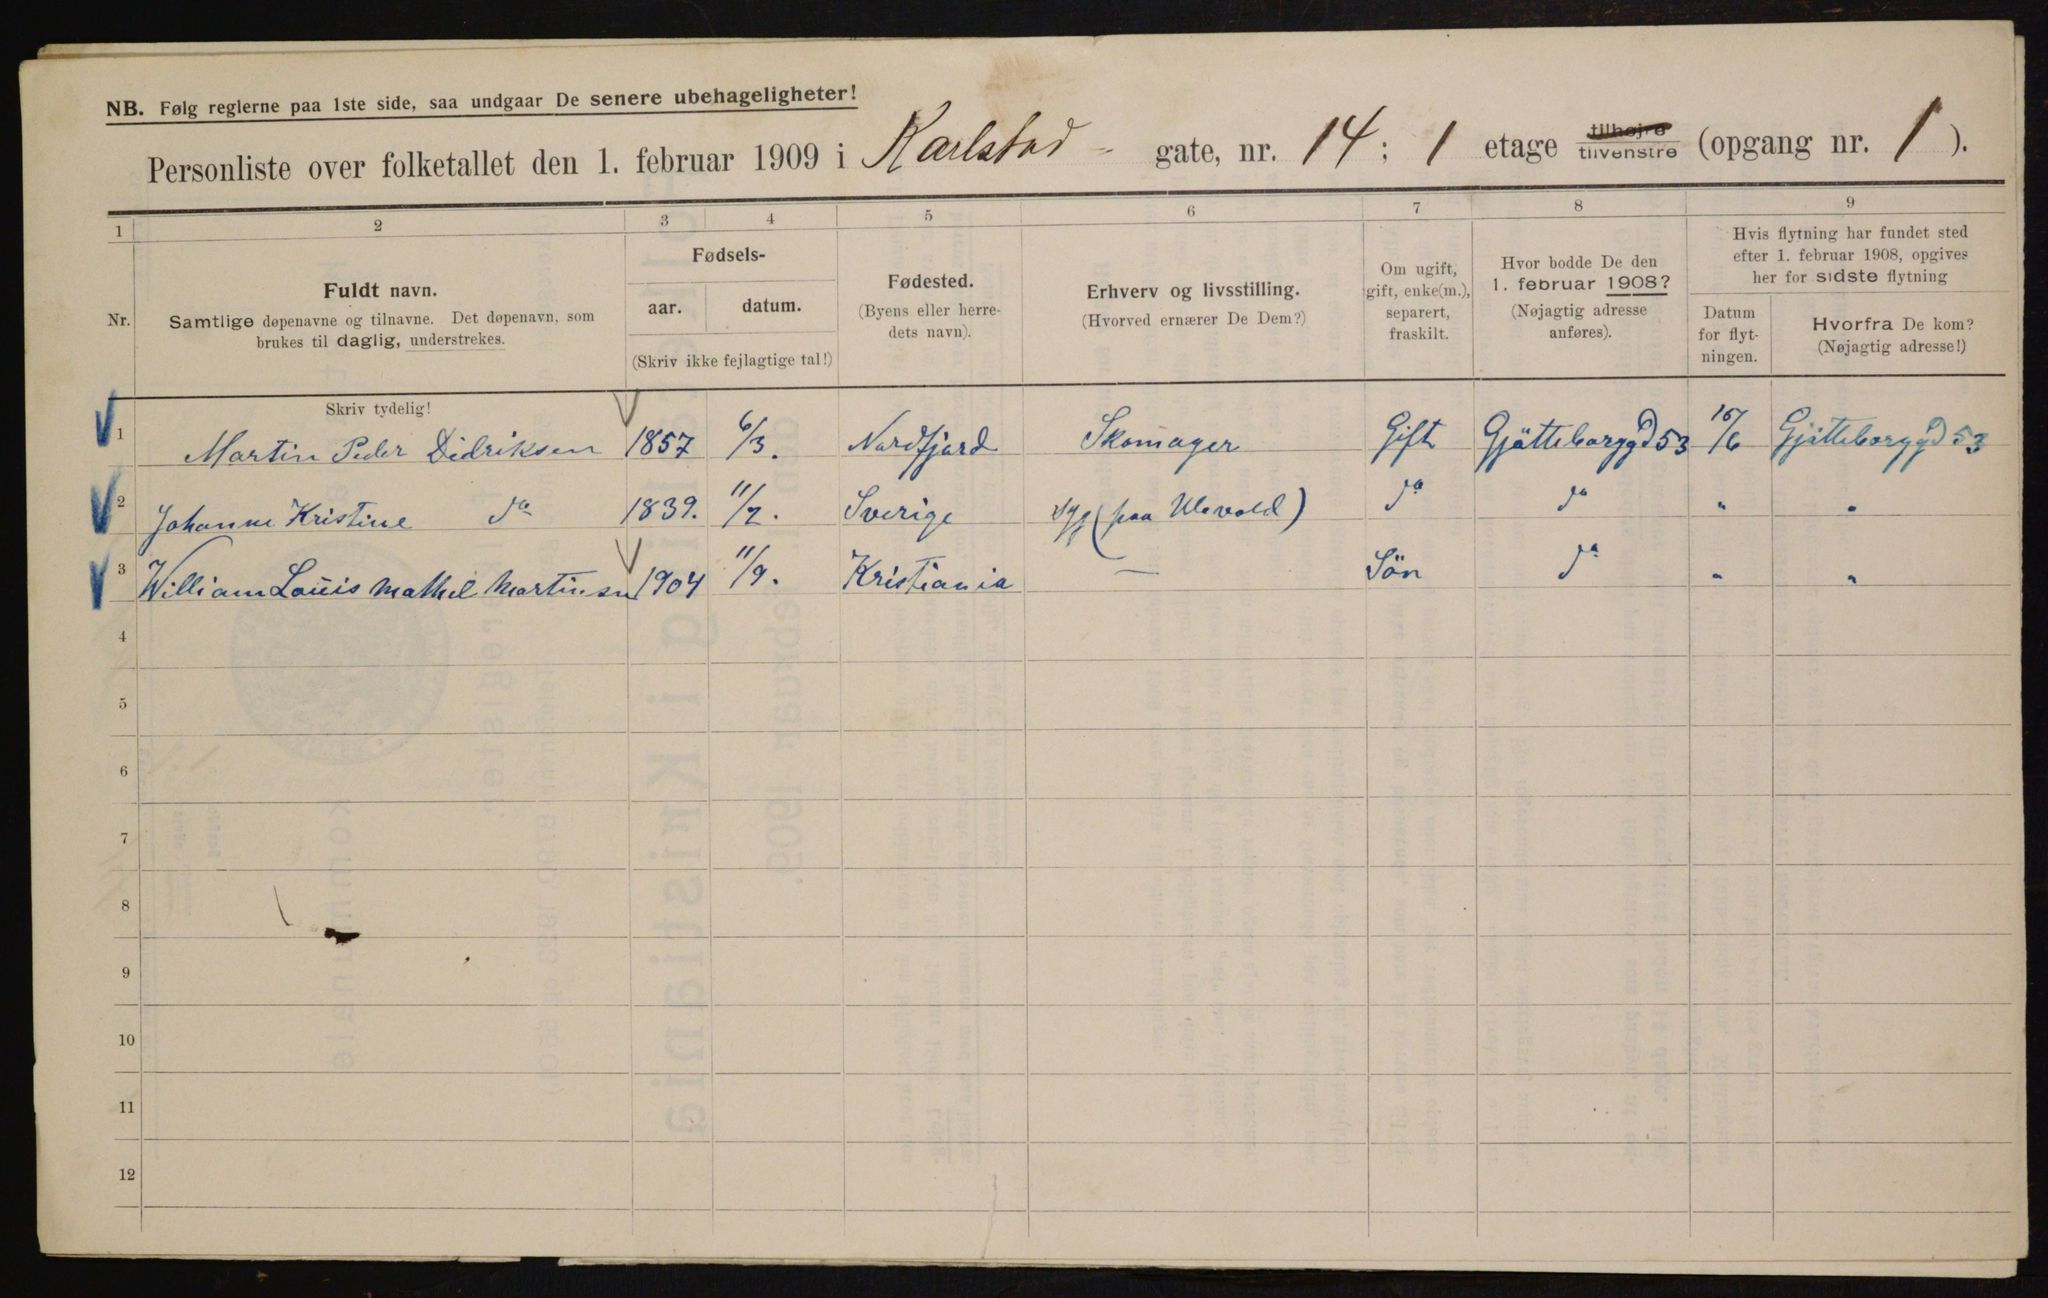 NB. Følg reglerne paa 1ste side, saa undgaar De senere ubehageligheter!
Personliste over folketallet den 1. februar 1909 i Karlstad- gate, nr. 14; 1 etage tilhøjre tilvenstre (opgang nr. 1).
1 2 3 4 5 6 7 8 9
Nr.
Fuldt navn.
Samtlige døpenavne og tilnavne. Det døpenavn, som
brukes til daglig, understrekes.
Skriv tydelig!
Fødsels-
aar. datum.
(Skriv ikke fejlagtige tal!)
Fødested.
(Byens eller herre-
dets navn).
Erhverv og livsstilling.
(Hvorved ernærer De Dem?)
Om ugift,
gift, enke(m.),
separert,
fraskilt.
Hvor bodde De den
1. februar 1908?
(Nøjagtig adresse
anføres).
Hvis flytning har fundet sted
efter 1. februar 1908, opgives
her for sidste flytning
Datum
for flyt-
ningen.
Hvorfra De kom?
(Nøjagtig adresse!)
1 Martin Peder Didriksen 1857 6/3. Nordfjord Skomager Gift Gjötteborggd 53 15/6 Gjötteborggd 53
2 Johanne Kristine do 1839. 11/2. Sverige syg (paa Ulevold) do do " "
3 William Louis Mathel Martinsen 1904 11/9. Kristiania — Sön do " "
4
5
6
7
8
9
10
11
12